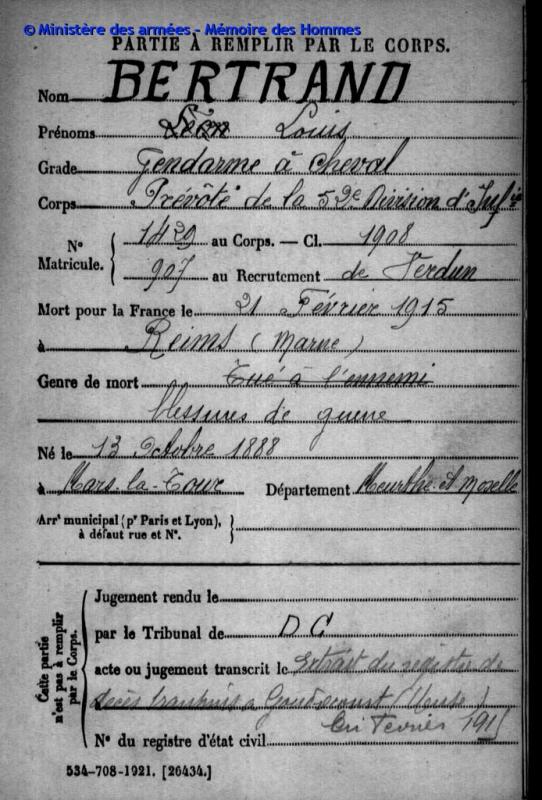 © Ministère des armées - Mémoire des Hommes
PARTIE À REMPLIR PAR LE CORPS.
Nom BERTRAND
Prénoms Léon Louis
Grade Gendarme à cheval
Corps Prévôté de la 52e Division d'Inf ie
N° Matricule. { 1429 au Corps. — Cl. 1908
907 au Recrutement de Verdun
Mort pour la France le 21 Février 1915
à Reims (Marne)
Genre de mort Tué à l'ennemi
blessures de guerre
Né le 13 Octobre 1888
à Mars-la-Tour Département Meurthe et Moselle
Arrt municipal (pr Paris et Lyon), }
à défaut rue et N°.
Cette partie n'est pas à remplir par le Corps.
Jugement rendu le
par le Tribunal de D C
acte ou jugement transcrit le Extrait du registre de
décès transmis à Gondrecourt (Meuse)
en Février 1915
N° du registre d'état civil
534-708-1921. [26434.]